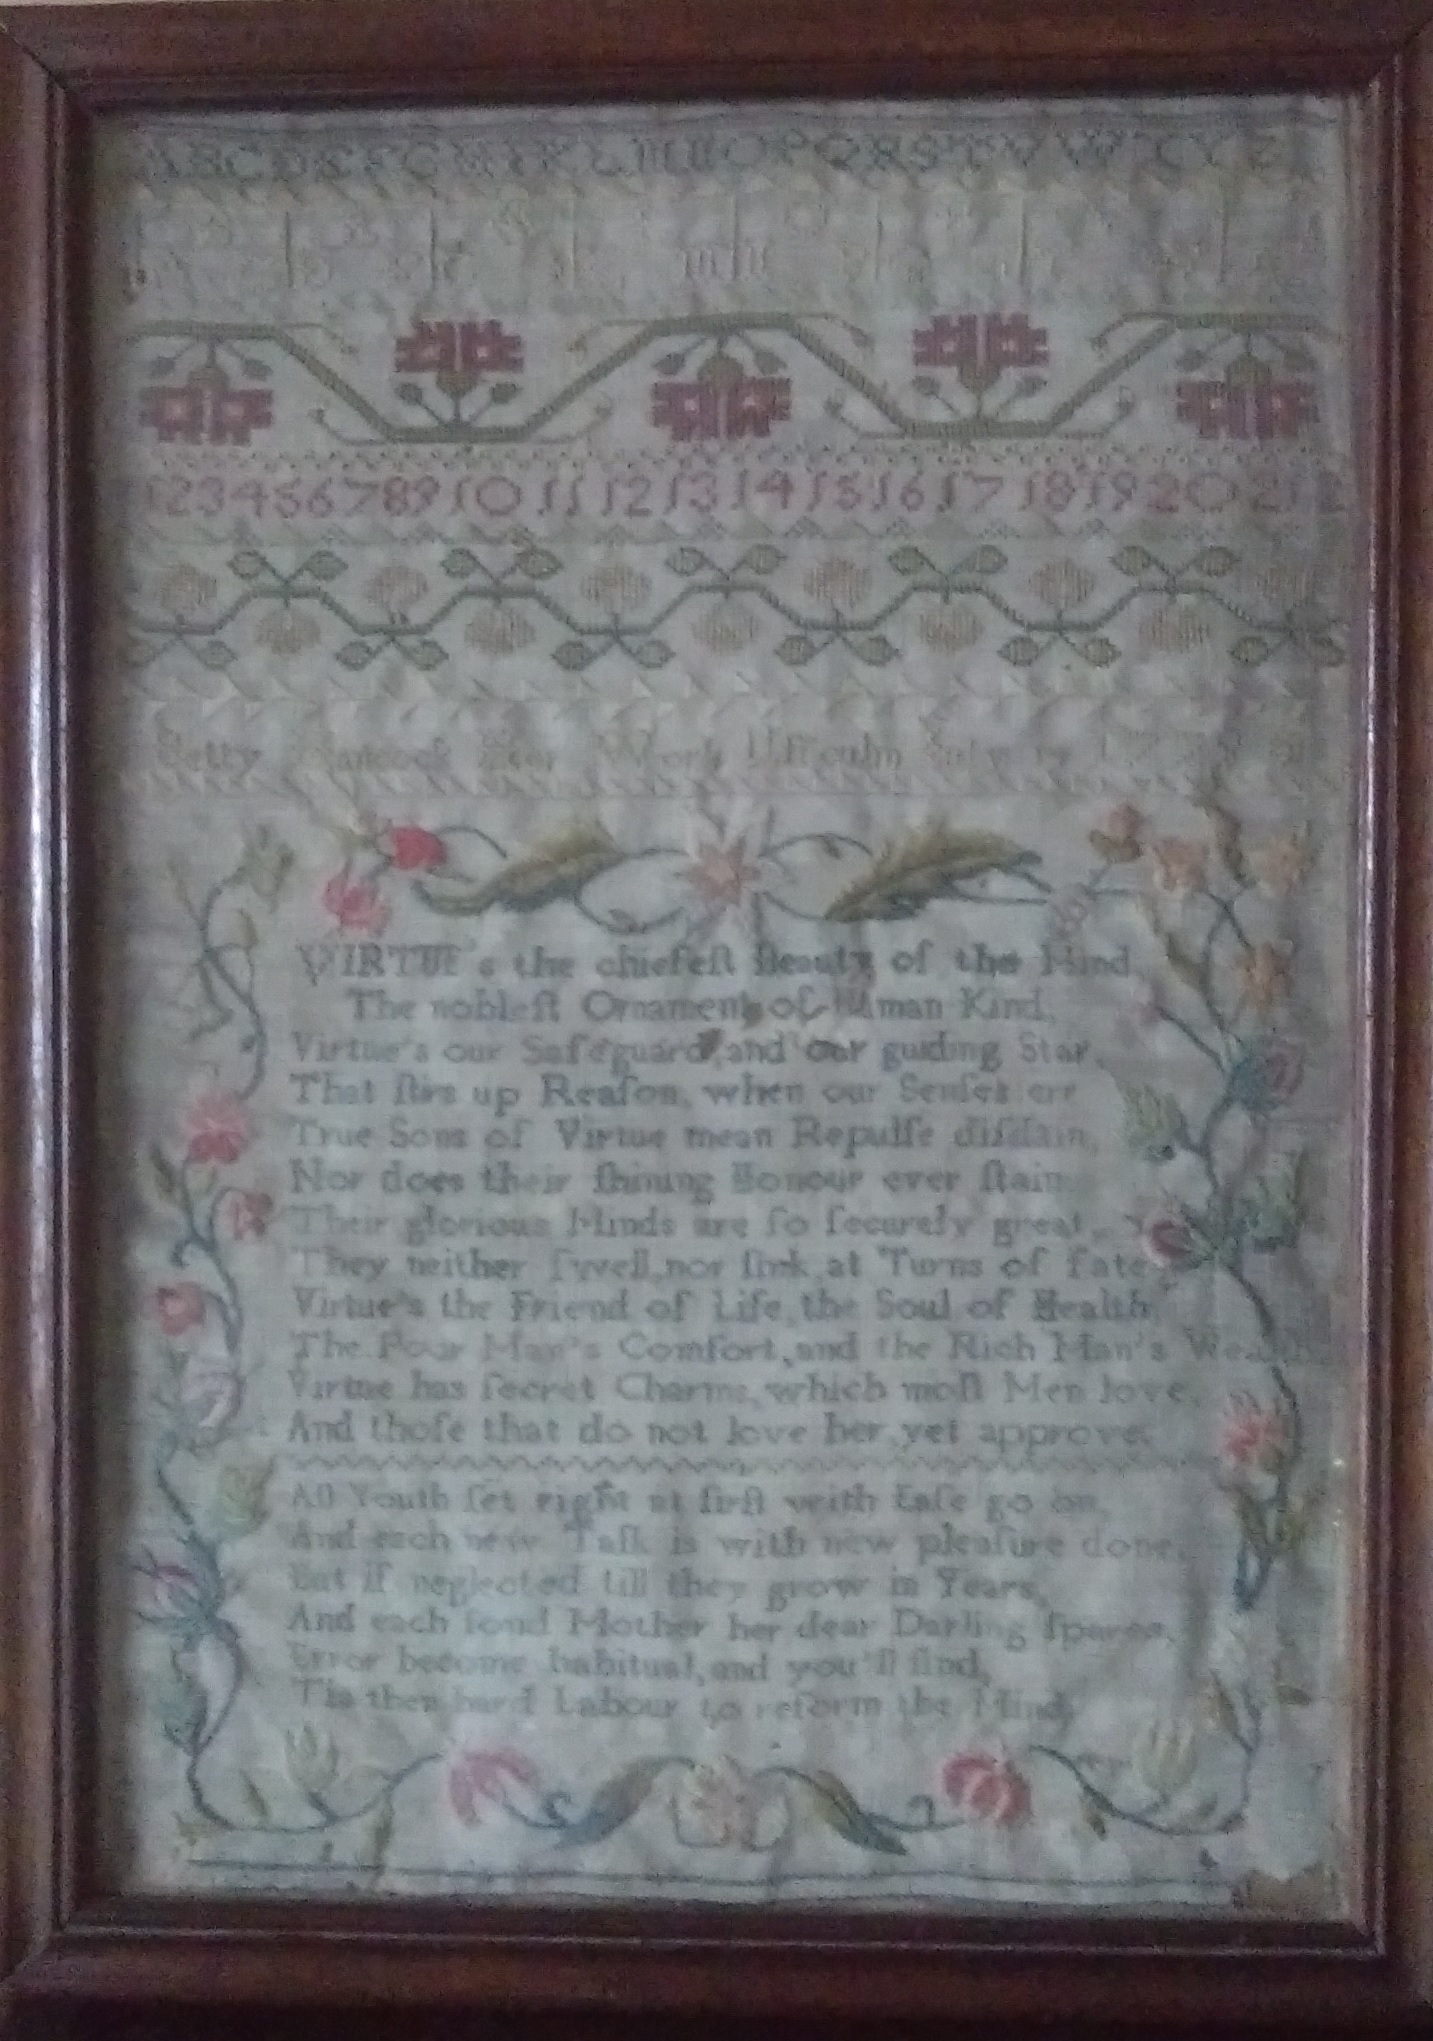 ABCDEFGHIKLMNOPQRSTVWXYZ
1 2 3 4 5 6 7 8 9 10 11 12 13 14 15 16 17 18 19 20 21 2
Betty Hancock Her Work Uffculm July
VIRTUE's the chiefeſt Beauty of the Mind
The nobleſt Ornament of Human Kind,
Virtue's our Safeguard, and our guiding Star,
That ſtirs up Reaſon, when our Senſes err
True Sons of Virtue mean Repulſe diſdain,
Nor does their ſhining Honour ever ſtain
Their glorious Minds are ſo ſecurely great,
They neither ſwell, nor ſink, at Turns of fate,
Virtue's the Friend of Life, the Soul of Health,
The Poor Man's Comfort, and the Rich Man's Wealth
Virtue has ſecret Charms, which moſt Men love,
And thoſe that do not love her, yet approve.
All Youth ſet right at firſt with Eaſe go on,
And each new Taſk is with new pleaſure done,
But if neglected till they grow in Years,
And each fond Mother her dear Darling ſpares,
Error become habitual, and you'll find,
'Tis then hard Labour to reform the Mind,